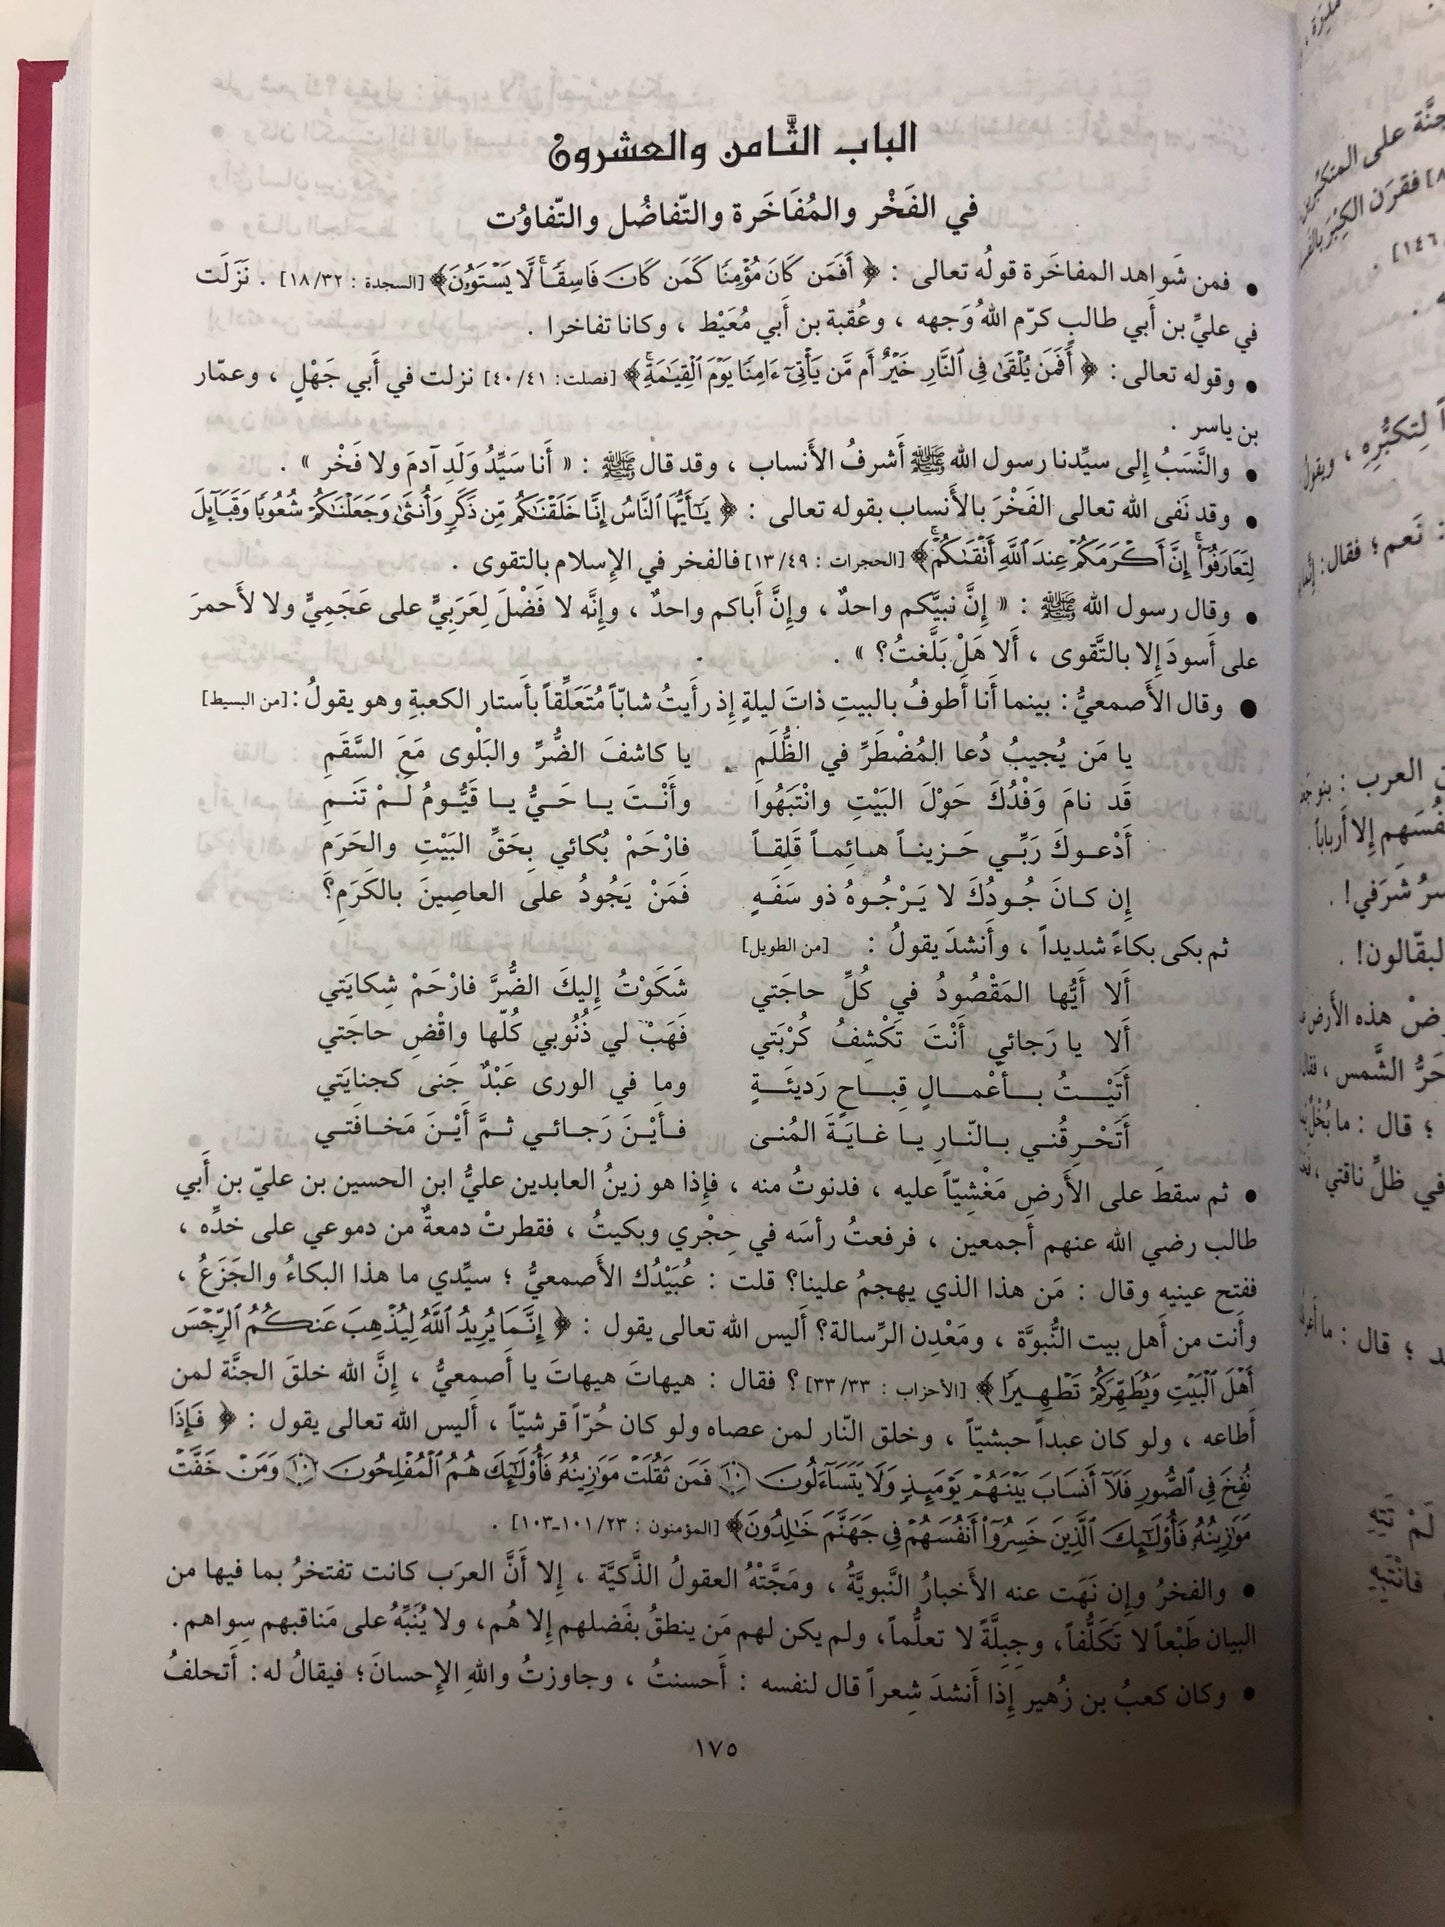 الباب الثَّامن والعشرون
في الفَخْر والمُفَاخَرة والتّفاضُل والتّفاوُت
• فمن شَواهد المفاخَرة قولُه تعالى : ﴿ أَفَمَن كَانَ مُؤْمِنًا كَمَن كَانَ فَاسِقًا ۚ لَّا يَسْتَوُۥنَ ﴾ [السجدة : ١٨/٣٢] . نَزَلَت
في عليٍّ بن أَبي طالبٍ كرّم اللهُ وَجهه ، وعُقبة بن أَبي مُعَيْط ، وكانا تفاخرا .
• وقوله تعالى : ﴿ أَفَمَن يُلْقَىٰ فِى ٱلنَّارِ خَيْرٌ أَم مَّن يَأْتِىٓ ءَامِنًا يَوْمَ ٱلْقِيَٰمَةِ ۚ ﴾ [فصلت: ٤٠/٤١] نزلت في أَبي جَهْلٍ ، وعمّار
بن ياسر .
• والنَّسَبُ إِلى سيِّدنا رسول الله ﷺ أَشرفُ الأَنساب ، وقد قال ﷺ : « أَنا سَيِّدُ وَلَدِ آدمَ ولا فَخْر » .
• وقد نَفى الله تعالى الفَخْرَ بالأَنساب بقوله تعالى : ﴿ يَٰٓأَيُّهَا ٱلنَّاسُ إِنَّا خَلَقْنَٰكُم مِّن ذَكَرٍ وَأُنثَىٰ وَجَعَلْنَٰكُمْ شُعُوبًا وَقَبَآئِلَ
لِتَعَارَفُوٓا۟ ۚ إِنَّ أَكْرَمَكُمْ عِندَ ٱللَّهِ أَتْقَىٰكُمْ ۚ ﴾ [الحجرات : ١٣/٤٩] فالفخر في الإِسلام بالتقوى .
• وقال رسول الله ﷺ : « إِنَّ نبيَّكم واحدٌ ، وإِنَّ أَباكم واحدٌ ، وإِنَّه لا فَضْلَ لِعَرَبِيٍّ على عَجَمِيٍّ ولا لأَحمرَ
على أَسودَ إِلا بالتَّقوى ، أَلا هَلْ بَلَّغتُ؟ » .
• وقال الأَصمعيُّ : بينما أَنا أَطوفُ بالبيتِ ذاتَ ليلةٍ إِذ رأَيتُ شابّاً مُتَعَلِّقاً بأَستار الكعبةِ وهو يقولُ : [من البسيط]
يا مَن يُجيبُ دُعا المُضْطَرِّ في الظُّلَمِ يا كاشفَ الضُّرِّ والبَلْوى مَعَ السَّقَمِ
قَد نامَ وَفْدُكَ حَوْلَ البَيْتِ وانْتَبَهُوا وأَنْتَ يـا حَـيُّ يـا قَيُّـومُ لَـمْ تَنَـمِ
أَدْعـوكَ رَبِّـي حَـزينـاً هـائِمـاً قَلِقـاً فارْحَمْ بُكائي بِحَقِّ البَيْتِ والحَرَمِ
إِن كـانَ جُـودُكَ لا يَـرْجُـوهُ ذو سَفَـهٍ فَمَنْ يَجُودُ على العاصِينَ بالكَرَمِ؟
ثم بكى بكاءً شديداً ، وأَنشدَ يقولُ : [من الطويل]
أَلا أَيُّها المَقْصُودُ في كُلِّ حاجَتي شَكَوْتُ إِليكَ الضُّرَّ فارْحَمْ شِكايَتي
أَلا يا رَجائي أَنْتَ تَكْشِفُ كُرْبَتي فَهَبْ لي ذُنُوبي كُلّها واقْضِ حاجَتي
أَتَيْـــتُ بـــأَعْمـــالٍ قِبـــاحٍ رَديئَـــةٍ وما في الورى عَبْدٌ جَنى كجنايَتي
أَتَحْـرِقُنـي بـالنّـارِ يـا غـايَـةَ المُنـى فـأَيْـنَ رَجـائـي ثـمَّ أَيْـنَ مَخـافَتـي
• ثم سقطَ على الأَرضِ مَغْشِيّاً عليه ، فدنوتُ منه ، فإِذا هو زينُ العابدين عليُّ ابن الحسين بن عليّ بن أَبي
طالب رضي الله عنهم أَجمعين ، فرفعتُ رأسَه في حِجْري وبكيتُ ، فقطرتْ دمعةٌ من دموعي على خدِّه ،
ففتح عينيه وقال : مَن هذا الذي يهجمُ علينا؟ قلت : عُبَيْدُك الأَصمعيُّ ؛ سيِّدي ما هذا البكاءُ والجَزَعُ ،
وأَنت من أَهل بيت النُّبوَّة ، ومَعْدِن الرِّسالة؟ أَليس الله تعالى يقول : ﴿ إِنَّمَا يُرِيدُ ٱللَّهُ لِيُذْهِبَ عَنكُمُ ٱلرِّجْسَ
أَهْلَ ٱلْبَيْتِ وَيُطَهِّرَكُمْ تَطْهِيرًا ﴾ [الأحزاب : ٣٣/٣٣] ؟ فقال : هيهاتَ هيهاتَ يا أَصمعيُّ ، إِنَّ الله خلقَ الجنَّة لمن
أَطاعه ، ولو كان عبداً حبشيّاً ، وخلق النّار لمن عصاه ولو كان حُرّاً قرشيّاً ، أَليس الله تعالى يقول : ﴿ فَإِذَا
نُفِخَ فِى ٱلصُّورِ فَلَآ أَنسَابَ بَيْنَهُمْ يَوْمَئِذٍ وَلَا يَتَسَآءَلُونَ ۝١٠ فَمَن ثَقُلَتْ مَوَٰزِينُهُۥ فَأُو۟لَٰٓئِكَ هُمُ ٱلْمُفْلِحُونَ ۝١٠ وَمَنْ خَفَّتْ
مَوَٰزِينُهُۥ فَأُو۟لَٰٓئِكَ ٱلَّذِينَ خَسِرُوٓا۟ أَنفُسَهُمْ فِى جَهَنَّمَ خَٰلِدُونَ ﴾ [المؤمنون : ١٠١/٢٣ـ١٠٣] .
• والفخرُ وإِن نَهَت عنه الأَخبارُ النَّبويَّةُ ، ومَجَّتْهُ العقولُ الذَّكيَّة ، إِلا أَنَّ العرَب كانت تفتخرُ بما فيها من
البيان طَبْعاً لا تَكَلُّفاً، وجِبِلَّةً لا تعلُّماً، ولم يكن لهم مَن ينطقُ بفَضلهم إِلا هُم، ولا يُنَبِّهُ على مَناقبهم سِواهم.
• وكان كعبُ بن زُهير إِذا أَنشدَ شِعراً قال لنفسه : أَحسنتُ ، وجاوزتُ واللهِ الإِحسانَ؛ فيقالُ له: أَتحلفُ
١٧٥
جنَّة على المتكبّرين
فقرَن الكِبْرَ
١٤٦]
لِتكبُّرِهِ ، ويقول
: نَعم؛ فقال:
العرب : بنو
إِلا أَرباباً.
شَرَفي! .
لبقّالون! .
هذه الأَرض
حَرُّ الشَّمس ،
؛ قال : ما
في ظلِّ ناقتي ،
؛ قال : ما
لَمْ تَتِهِ
فانْتَبِهِ